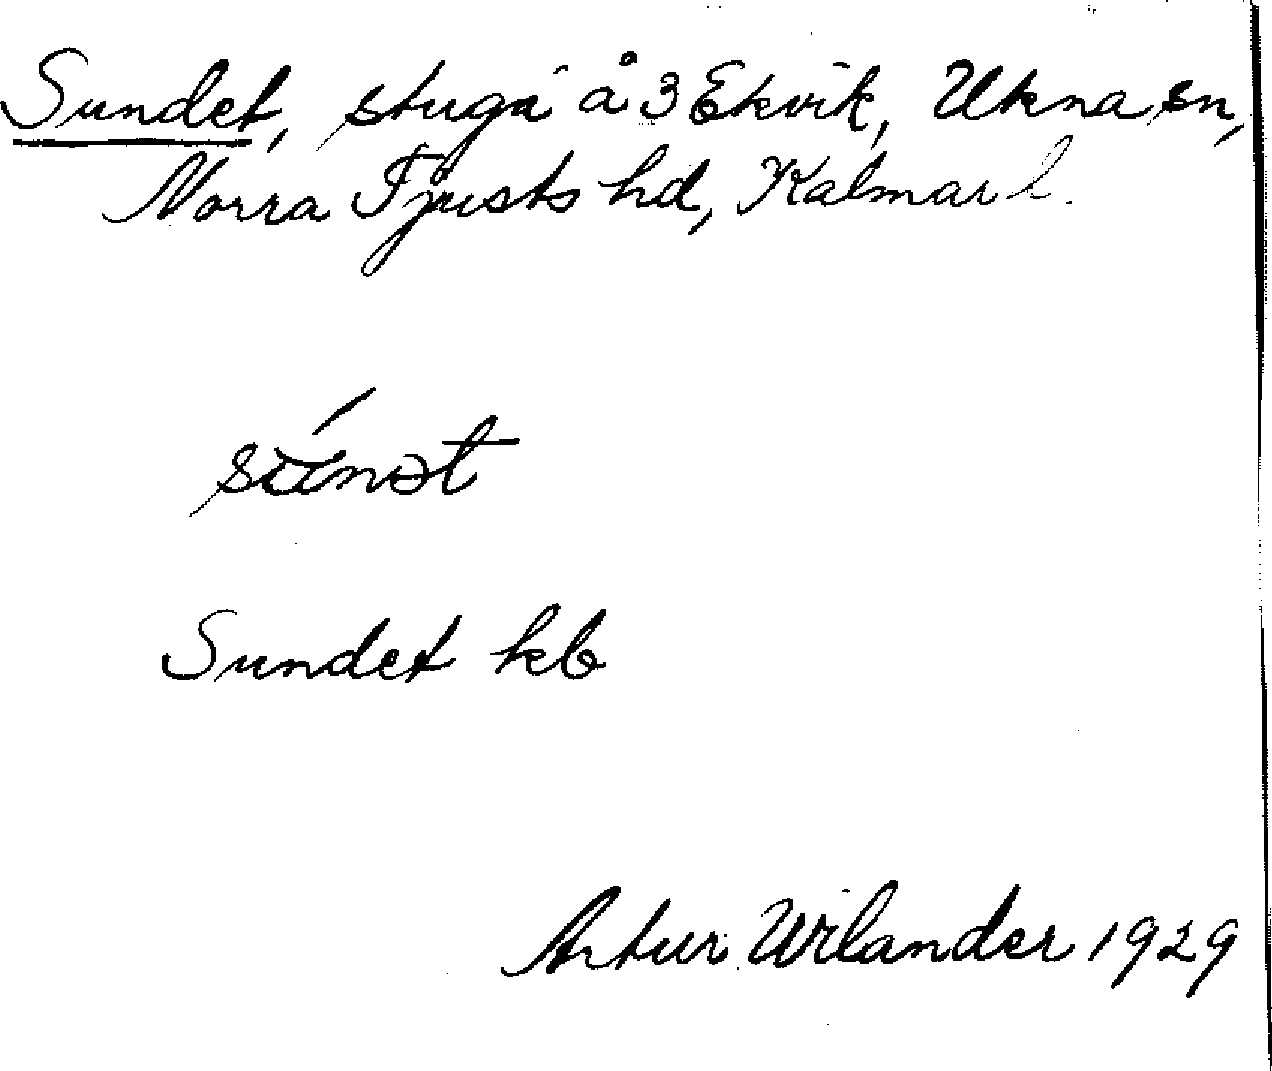 Sundet, stuga å 3 Ekvik, Ukna sn,
Norra Tjusts hd, Kalmar l.
súnət
Sundet kb
Artur Wilander 1929